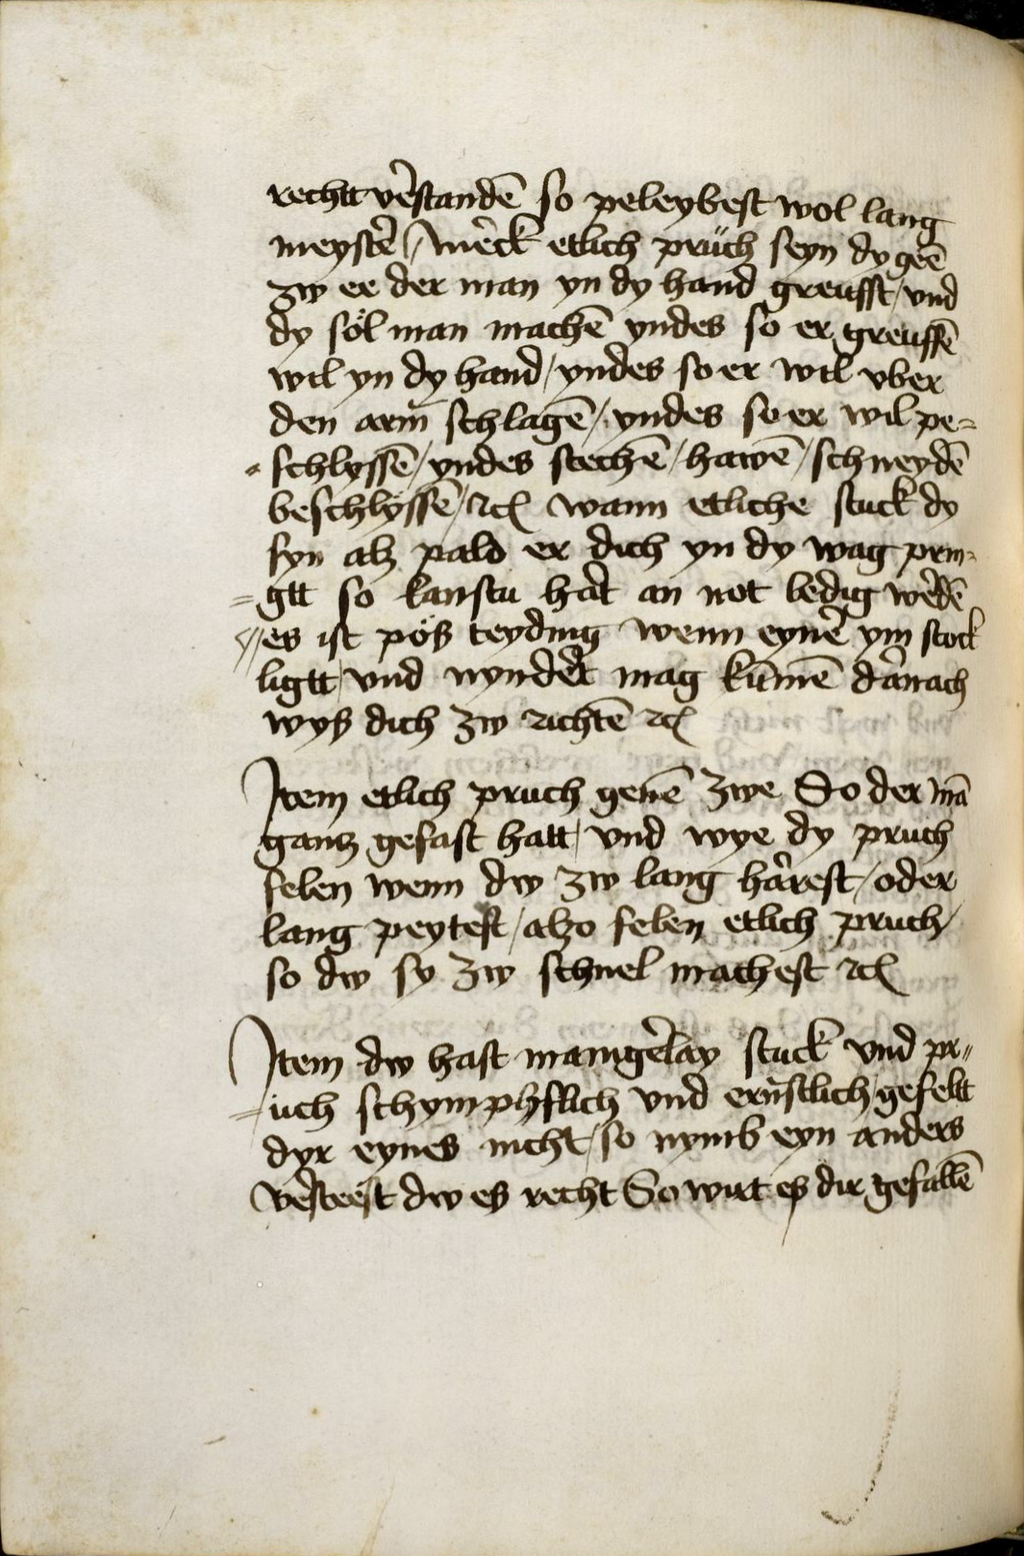 rechtt v̉standē so peleybest wol lang
meystẻ / mẻck etlich prüch seyn dy geē
zw ee der man yn dy hand greufft / vnd
dy söl man machē yndes so er greuffē
wil yn dy hand / yndes so er wil vber
den arm̄ schlagē / yndes so er wil pe=
= schlyssē / yndes stechē / hawē / schneydē
beschlyssē / ꝛcꝭ wann etliche stuck dy
syn alz pald er dich yn dy wag prin=
= gtt so kanstu hảt an not ledig wẻdē
// es ist pöß teyding wenn eynẻ ym stock
ligtt / vnd nyndẻt mag kūmē dảnach
wyß dich zw richtē ꝛcꝭ
Item etlich pruch genē zwe So der mā
gantz gefast hatt / vnd wye dy pruch
felen wenn dw zw lang hảrest / oder
lang peytest / alzo felen etlich pruch /
so dw sy zw schnel machest ꝛcꝭ
Item dw hast manigẻlay stuck vnd pr=
= üch schymphflich vnd ernstlich / gefelt
dyr eynes nicht / so nymb eyn anders
v̉steest dw es recht So wirt eß dir gefallē